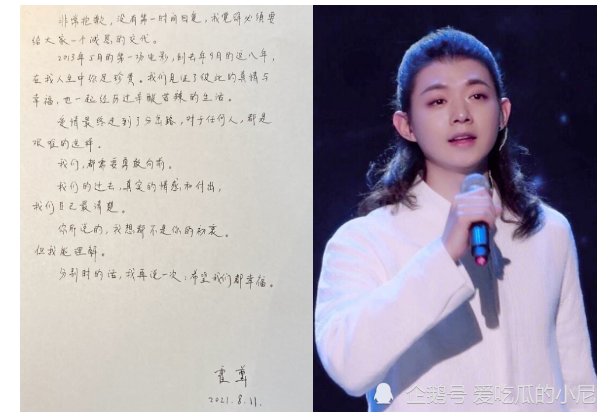 非常抱歉，没有第一时间回复，我觉得必须要
给大家一个诚恳的交代。
2013年5月的第一场电影，到去年9月的这八年，
在我人生中弥足珍贵。我们见证了彼此的真情与
幸福，也一起经历过辛酸苦辣的生活。
爱情最终走到了分岔路，对于任何人，都是
艰难的选择。
我们，都需要勇敢向前。
我们的过去，真实的情感和付出，
我们自己最清楚。
你所说的，我想都不是你的初衷。
但我能理解。
分别时的话，我再说一次：希望我们都幸福。
霍尊
2021.8.11.
企鹅号 爱吃瓜的小尼